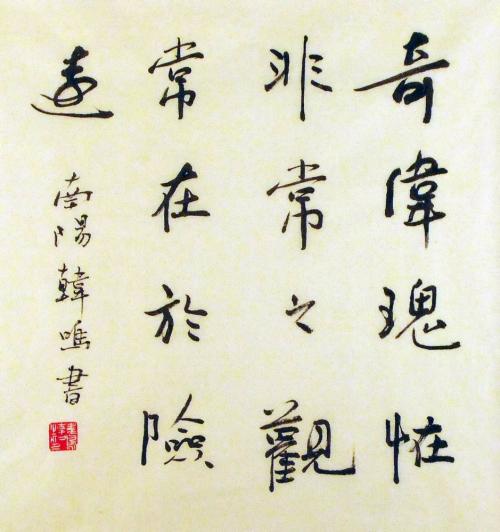 奇偉瑰恠
非常之觀
常在於險
遠
南陽韓唯書